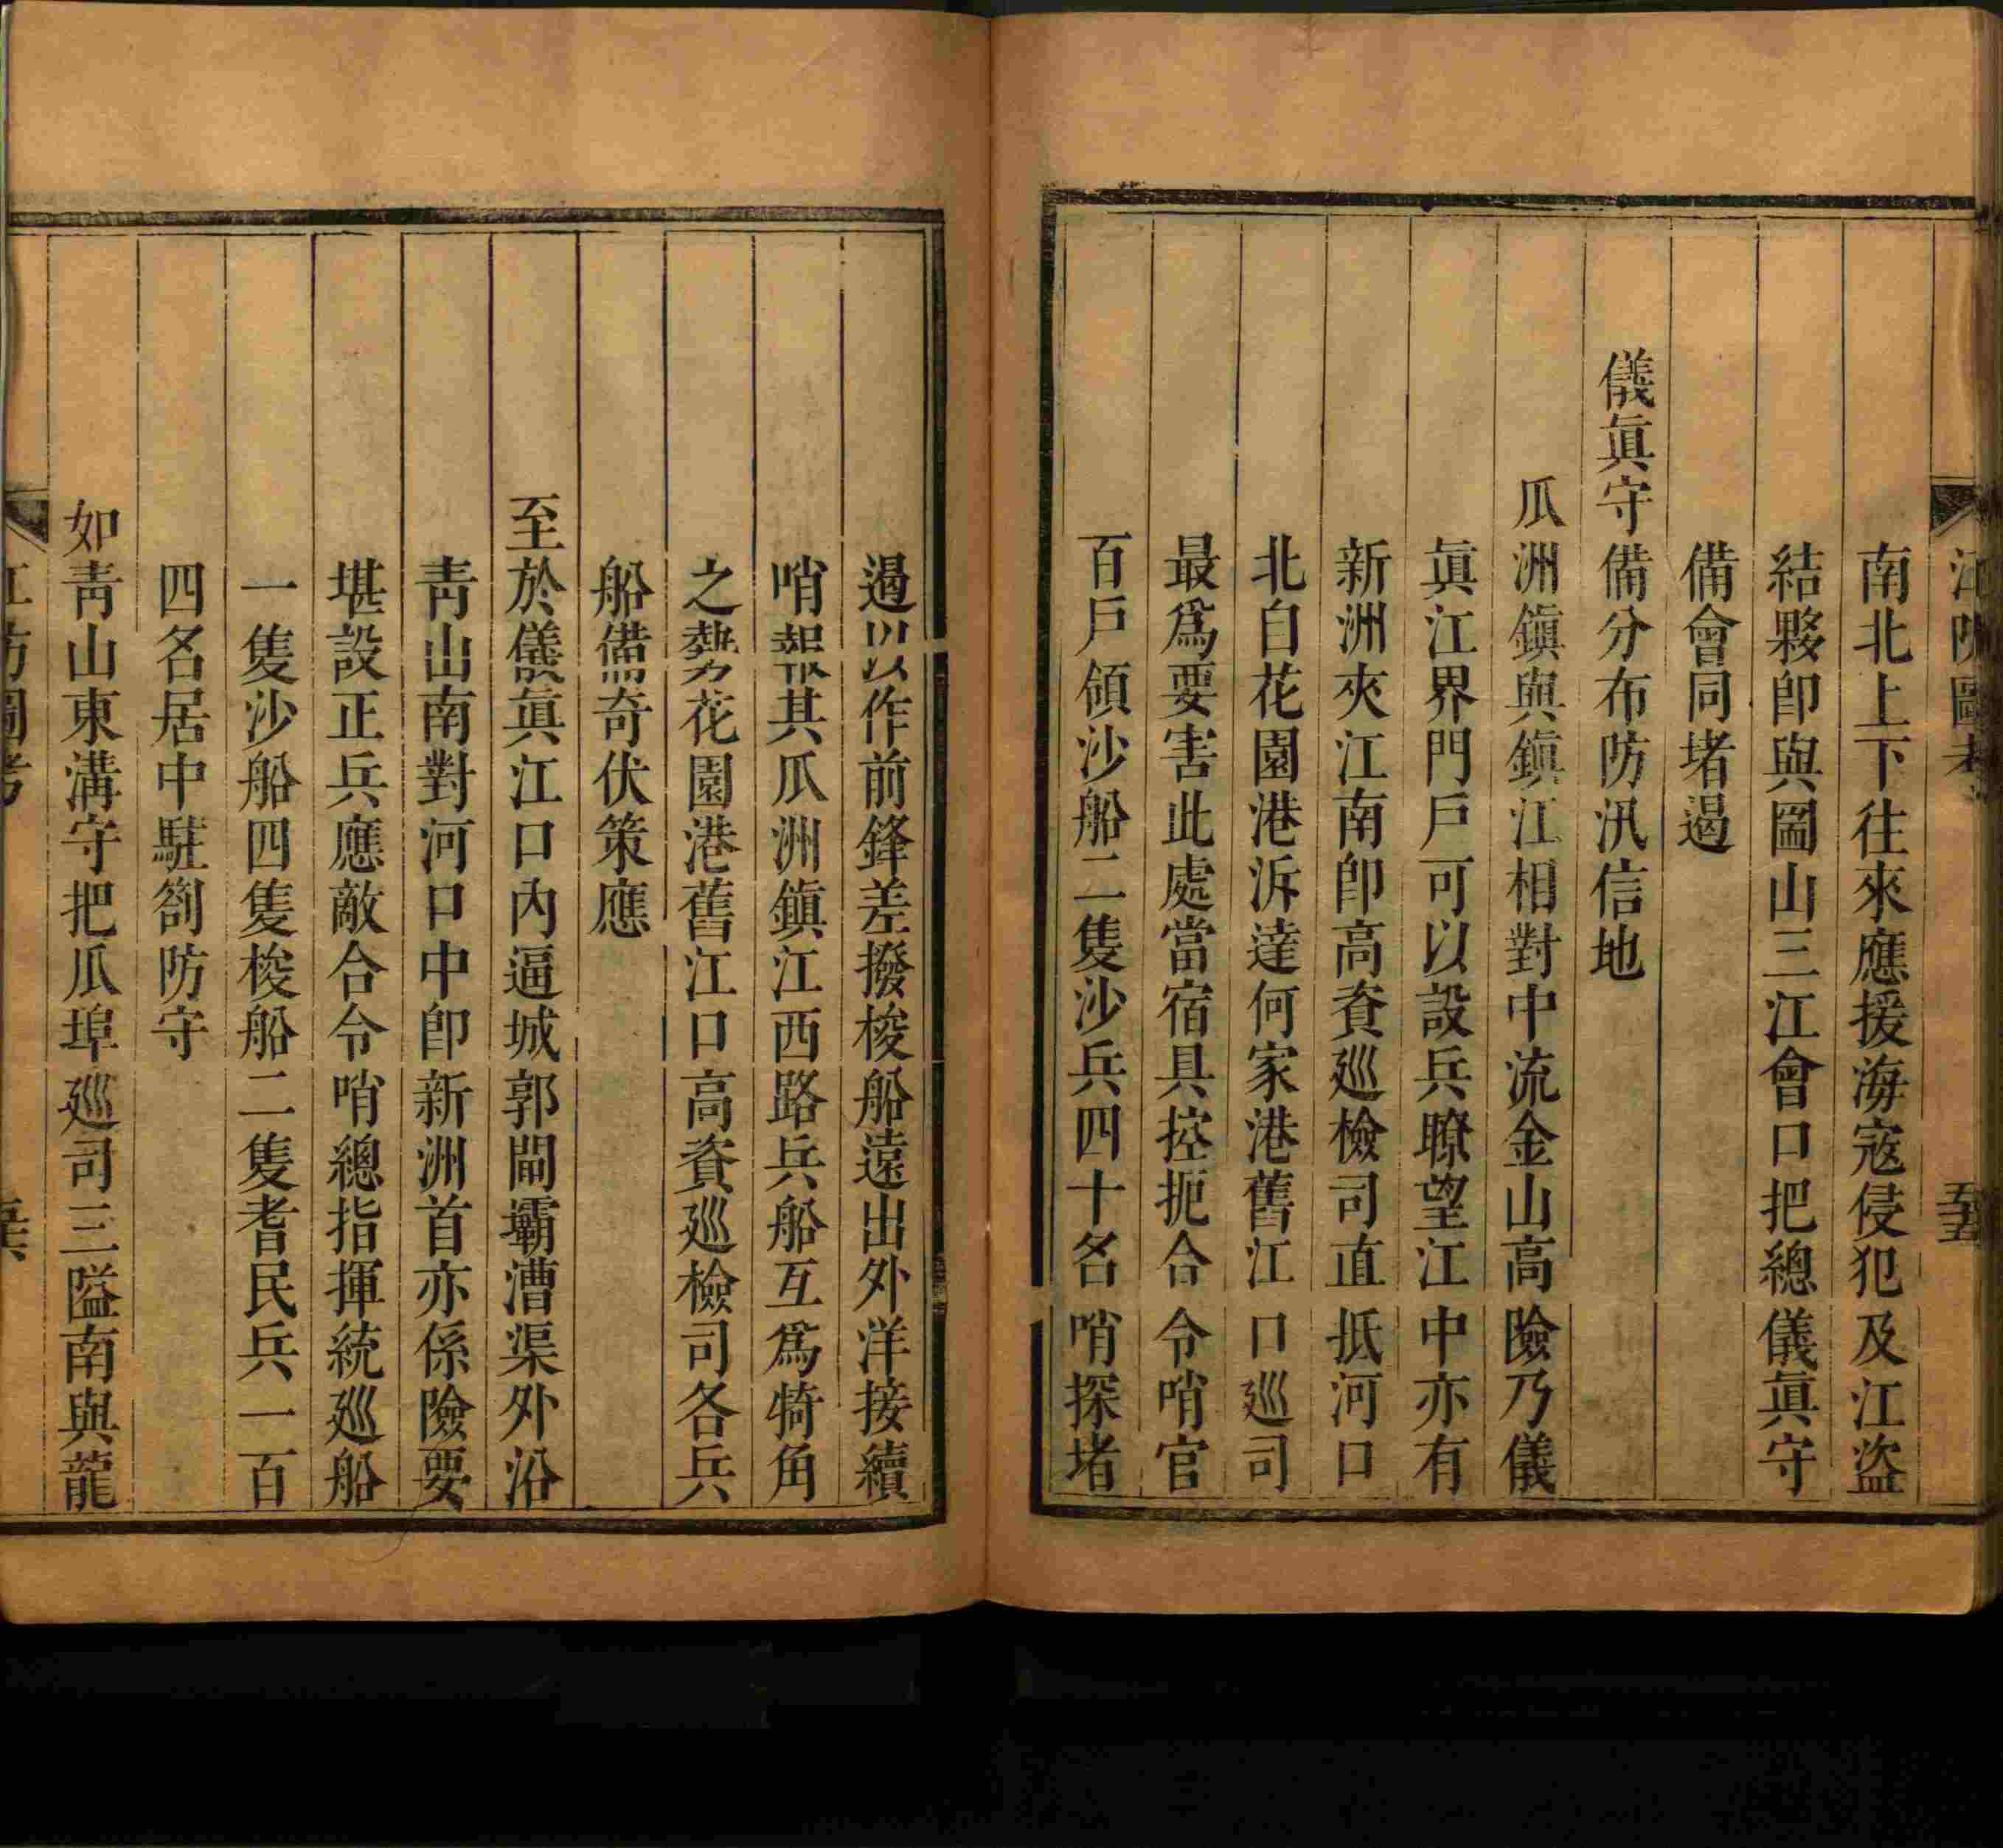 江防圖考 五五
南北上下往來應援海寇侵犯及江盜
結夥即與圌山三江會口把總儀眞守
備會同堵遏
儀眞守備分布防汛信地
瓜洲鎭與鎭江相對中流金山高險乃儀
眞江界門戸可以設兵瞭望江中亦有
新洲夾江南即高資巡檢司直抵河口
北自花園港泝達何家港舊江口巡司
最爲要害此處當宿具控扼合令哨官
百戸領沙船二隻沙兵四十名哨探堵
遏以作前鋒差撥梭船遠出外洋接續
哨報其瓜洲鎭江西路兵船互爲犄角
之勢花園港舊江口高資巡檢司各兵
船備奇伏策應
至於儀眞江口內逼城郭閘壩漕渠外沿
靑山南對河口中即新洲首亦係險要
堪設正兵應敵合令哨總指揮統巡船
一隻沙船四隻梭船二隻耆民兵一百
四名居中駐劄防守
如靑山東溝守把瓜埠巡司三隘南與龍
江防圖考